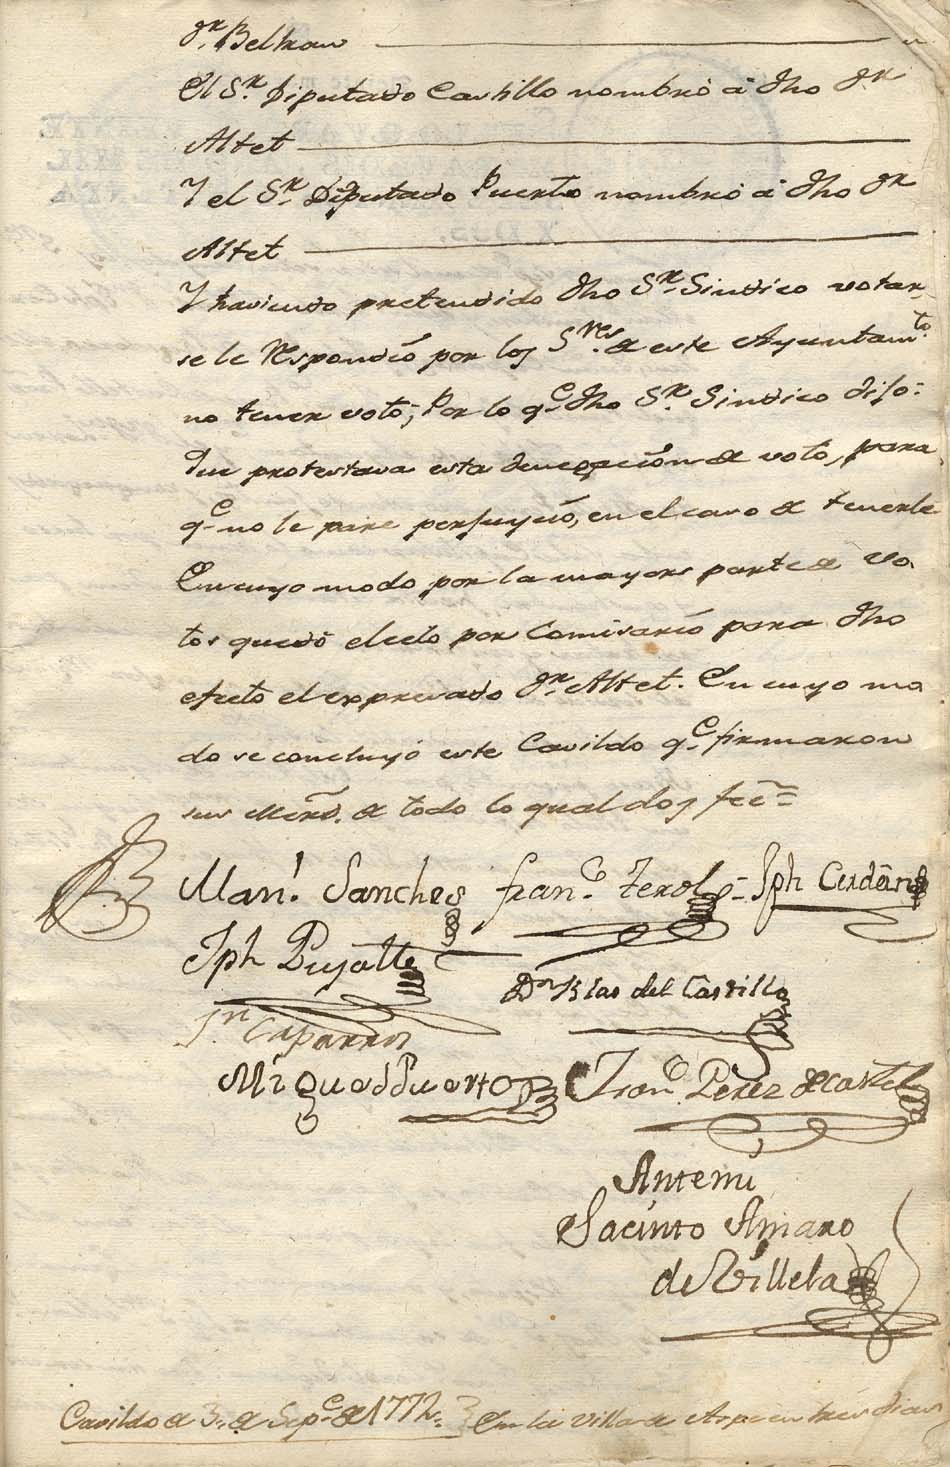 Sr. Beltran
El Sr. Diputado Castillo nombró á dho Sr
Altet
Y el Sr. Diputado Puerto nombró á dho Sr
Altet
Y haviendo pretendido dho Sr. Sindico votar,
se le respondió por los Sres. de este Ayuntamto.
no tener voto; Por lo qe. dho Sr. Sindico dijo:
Que protestava esta denegación de voto, para
qe. no le pare perjuycio, en el caso de tenerle
En cuyo modo por la mayor parte de vo
tos quedó electo por Comisario para dho
efecto el expresado Sr. Altet. En cuyo mo
do se concluyó este Cavildo qe. firmaron
sus Mrds. de todo lo qual doy fee=
Manl. Sanches Franco. Terol Jph Cerdán
Jph Pujalte
Dn Blas del Castillo
Caparros
Miguel Puerto Franco. Perez de Castel
Antemi
Jacinto Amaro
de Villela
Cavildo de 3. de Sepe. de 1772. En la Villa de Aspe en tres dias